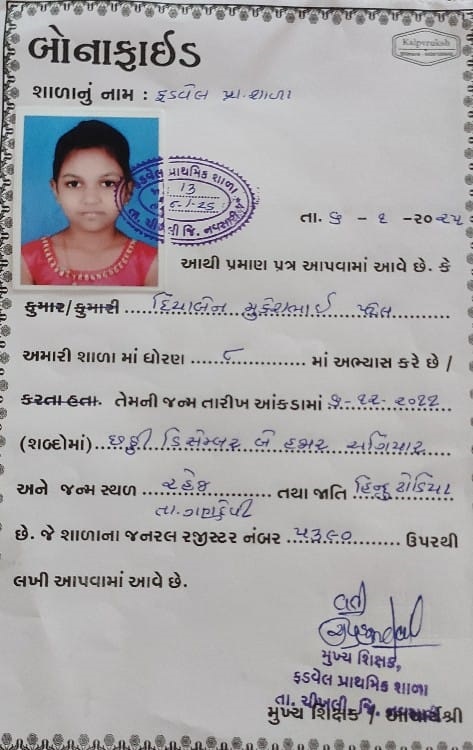 બોનાફાઈડ
Kalpvruksh
શાળાનું નામ : ફડવેલ પ્રા. શાળા
ફડવેલ પ્રાથમિક શાળા
13
તા. ચીખલી જિ. નવસારી
તા. ૬ - ૧ - ૨૦૨૫
આથી પ્રમાણ પત્ર આપવામાં આવે છે. કે
કુમાર/કુમારી દિયાબેન મુકેશભાઈ પટેલ
અમારી શાળા માં ધોરણ ૮ માં અભ્યાસ કરે છે /
કરતા હતા. તેમની જન્મ તારીખ આંકડામાં ૬-૧૨-૨૦૧૧
(શબ્દોમાં) છઠ્ઠી ડિસેમ્બર બે હજાર અગિયાર
અને જન્મ સ્થળ રહેજ તથા જાતિ હિન્દુ ધોડિયા
તા. ગણદેવી
છે. જે શાળાના જનરલ રજીસ્ટર નંબર ૫૩૯૦ ઉપરથી
લખી આપવામાં આવે છે.
વતી
મુખ્ય શિક્ષક,
ફડવેલ પ્રાથમિક શાળા
તા. ચીખલી, જિ. નવસારી
મુખ્ય શિક્ષક / આચાર્યશ્રી